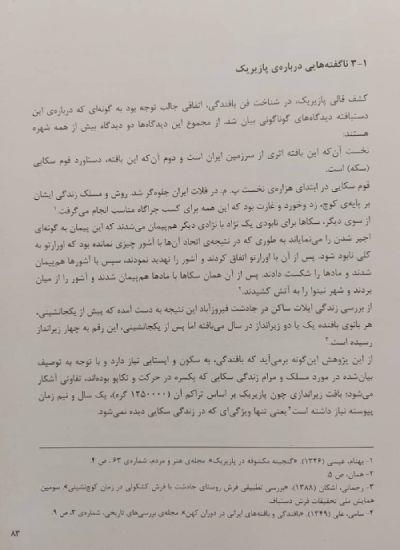 ۳-۱ ناگفته‌هایی درباره‌ی پازیریک
کشف قالی پازیریک، در شناخت فن بافندگی، اتفاقی جالب توجه بود به گونه‌ای که درباره‌ی این
دستبافته دیدگاه‌های گوناگونی بیان شد. از مجموع این دیدگاه‌ها دو دیدگاه بیش از همه شهره
هستند:
نخست آن‌که این بافته اثری از سرزمین ایران است و دوم آن‌که این بافته، دستاورد قوم سکایی
(سکه) است.
قوم سکایی در ابتدای هزاره‌ی نخست پ. م. در فلات ایران جلوه‌گر شد. روش و مسلک زندگی ایشان
بر پایه‌ی کوچ، زد وخورد و غارت بود که این همه برای کسب چراگاه مناسب انجام می‌گرفت.۱
از سوی دیگر، سکاها برای نابودی یک نژاد با نژادی دیگر هم‌پیمان می‌شدند که این پیمان به گونه‌ای
اجیر شدن را می‌نمایاند به طوری که در نتیجه‌ی اتحاد آن‌ها با آشور چیزی نمانده بود که اورارتو به
کلی نابود شود. پس از آن با اورارتو اتفاق کردند و آشور را تهدید نمودند، سپس با آشورها هم‌پیمان
شدند و مادها را شکست دادند. پس از آن همان سکاها با مادها هم‌پیمان شدند و آشور را از میان
بردند و شهر نینوا را به آتش کشیدند.۲
از بررسی زندگی ایلات ساکن در جادشت فیروزآباد این نتیجه به دست آمده که پیش از یکجانشینی،
هر بانوی بافنده یک یا دو زیرانداز در سال می‌بافته اما پس از یکجانشینی، این رقم به چهار زیرانداز
رسیده است.۳
از این پژوهش این‌گونه برمی‌آید که بافندگی، به سکون و ایستایی نیاز دارد و با توجه به توصیف
بیان‌شده در مورد مسلک و مرام زندگی سکایی که یکسره در حرکت و تکاپو بوده‌اند، تفاوتی آشکار
می‌شود: بافت زیراندازی چون پازیریک بر اساس تراکم آن (۱۲۵۰۰۰۰ گره)، یک سال و نیم زمان
پیوسته نیاز داشته است۴ یعنی تنها ویژگی‌ای که در زندگی سکایی دیده نمی‌شود.
۱- بهنام، عیسی (۱۳۴۶). «گنجینه مکشوفه در پازیریک». مجله‌ی هنر و مردم، شماره‌ی ۶۳ . ص ۴.
۲- همان، ص ۵.
۳- رحمانی، اشکان (۱۳۸۸). «بررسی تطبیقی فرش روستای جادشت با فرش کشکولی در زمان کوچ‌نشینی». سومین
همایش ملی تحقیقات فرش دستباف.
۴- سامی، علی (۱۳۴۹). «بافندگی و بافته‌های ایرانی در دوران کهن». مجله‌ی بررسی‌های تاریخی، شماره‌ی ۲، ص ۹.
۸۳